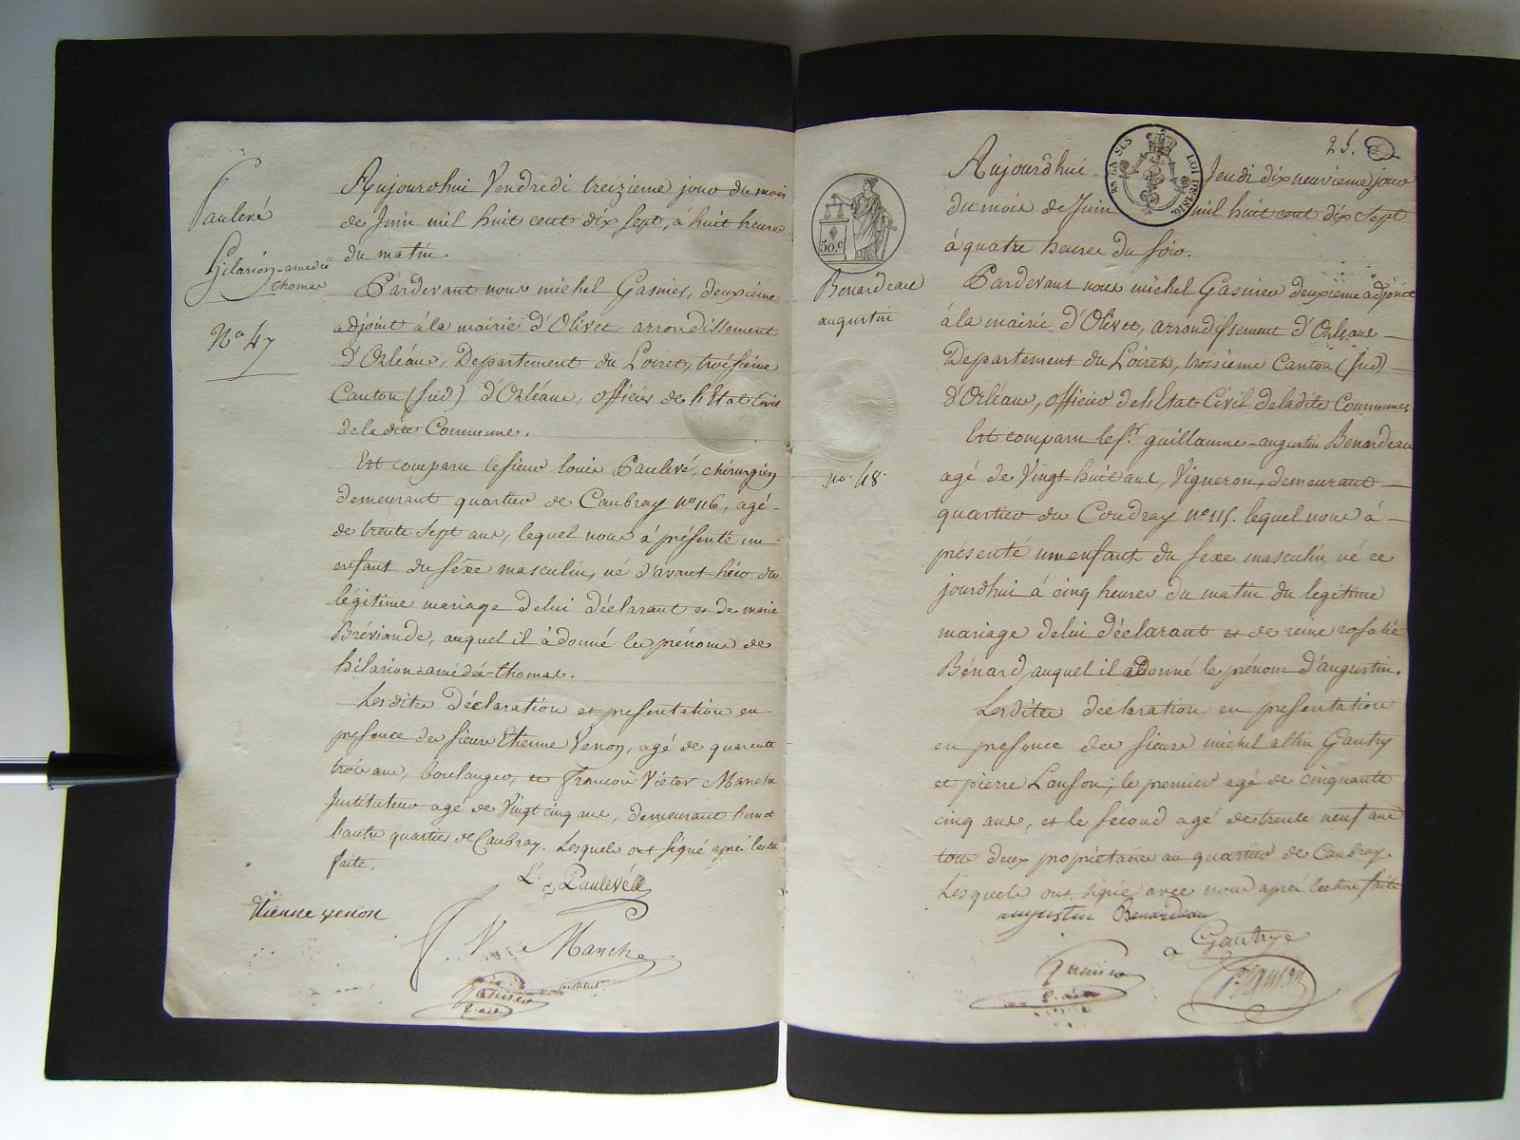 Paulevé
hilarion-amedée
thomas
No 47
Aujourdhui Vendredi treizieme jour du mois
de Juin mil huit cent dix sept, à huit heures
du matin.
Pardevant nous michel Gasnier, deuxieme
adjoint à la mairie d'Olivet arrondissement
d'Orléans, Departement du Loiret, troisieme
Canton (sud) d'Orléans, officier de l'Etat Civil
de la dite Commune.
Est comparu le sieur louis Paulevé, chirurgien
demeurant quartier de Caubray no 116, agé
de trente sept ans, lequel nous à présenté un
enfant du sexe masculin, né d'avant hier du
légitime mariage de lui déclarant et de marie
Bréviande, auquel il à donné les prénoms de
hilarion-amédée-thomas.
Lesdites Déclaration et presentation en
presence des sieurs Etienne Venon, agé de quarente
trois ans, boulanger, et francois Victor Manche
Instituteur agé de Vingt cinq ans, demeurant l'un et
l'autre quartier de Caubray. Lesquels ont signé après lecture
faite.
L. Paulevé
etienne venon
V. Manche
instituteur
Gasnier
25.
LOI DE
50.c
Benardeau
augustin
no. 48
Aujourdhui Jeudi dix neuvieme jour
du mois de Juin mil huit cent dix sept
à quatre heures du soir.
Pardevant nous michel Gasnier deuxieme adjoint
à la mairie d'Olivet, arrondissement d'Orléans
Departement du Loiret, troisieme Canton (sud)
d'Orléans, officier de l'Etat Civil de ladite Commune
Est comparu le sr. guillaume-augustin Benardeau
agé de Vingt huit ans, Vigneron, demeurant
quartier du Coudray no 115. lequel nous à
présenté un enfant du sexe masculin né ce
jourdhui à cinq heures du matin du legitime
mariage de lui déclarant et de reine rosalie
Bénard, auquel il a donné le prénom d'augustin.
Lesdites declaration en presentation
en presence des sieurs michel Gautry
et pierre Lanson; le premier agé de cinquante
cinq ans, et le second agé de trente neuf ans
tous deux propriétaires au quartier de Caubray.
Lesquels ont signé avec nous après lecture faite
augustin Benardeau
a Gautry
Gasnier
P. Lanson